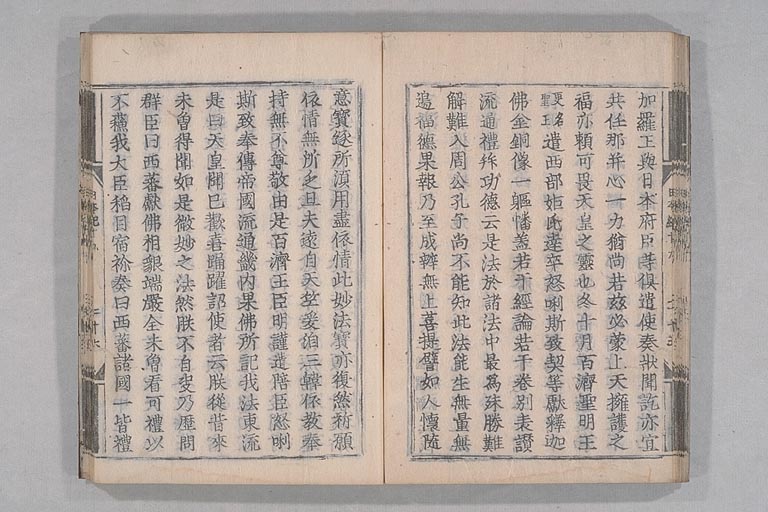 加羅王與日本府臣等俱遣使奏狀聞訖亦宜
共任那并心一力猶尚若茲必蒙上天擁護之
福亦賴可畏天皇之靈也冬十月百濟聖明王
更名聖王遣西部姬氏達率怒唎斯致契等獻釋迦
佛金銅像一軀幡蓋若干經論若干卷別表讚
流通禮拜功德云是法於諸法中最為殊勝難
解難入周公孔子尚不能知此法能生無量無
邊福德果報乃至成辨無上菩提譬如人懷隨
意寶逐所須用盡依情此妙法寶亦復然祈願
依情無所乏且夫遠自天竺爰洎三韓依教奉
持無不尊敬由是百濟王臣明謹遣陪臣怒唎
斯致奉傳帝國流通畿內果佛所記我法東流
是日天皇聞已歡喜踊躍詔使者云朕從昔來
未曾得聞如是微妙之法然朕不自決乃歷問
群臣曰西蕃獻佛相貌端嚴全未曾看可禮以
不蘇我大臣稻目宿祢奏曰西蕃諸國一皆禮